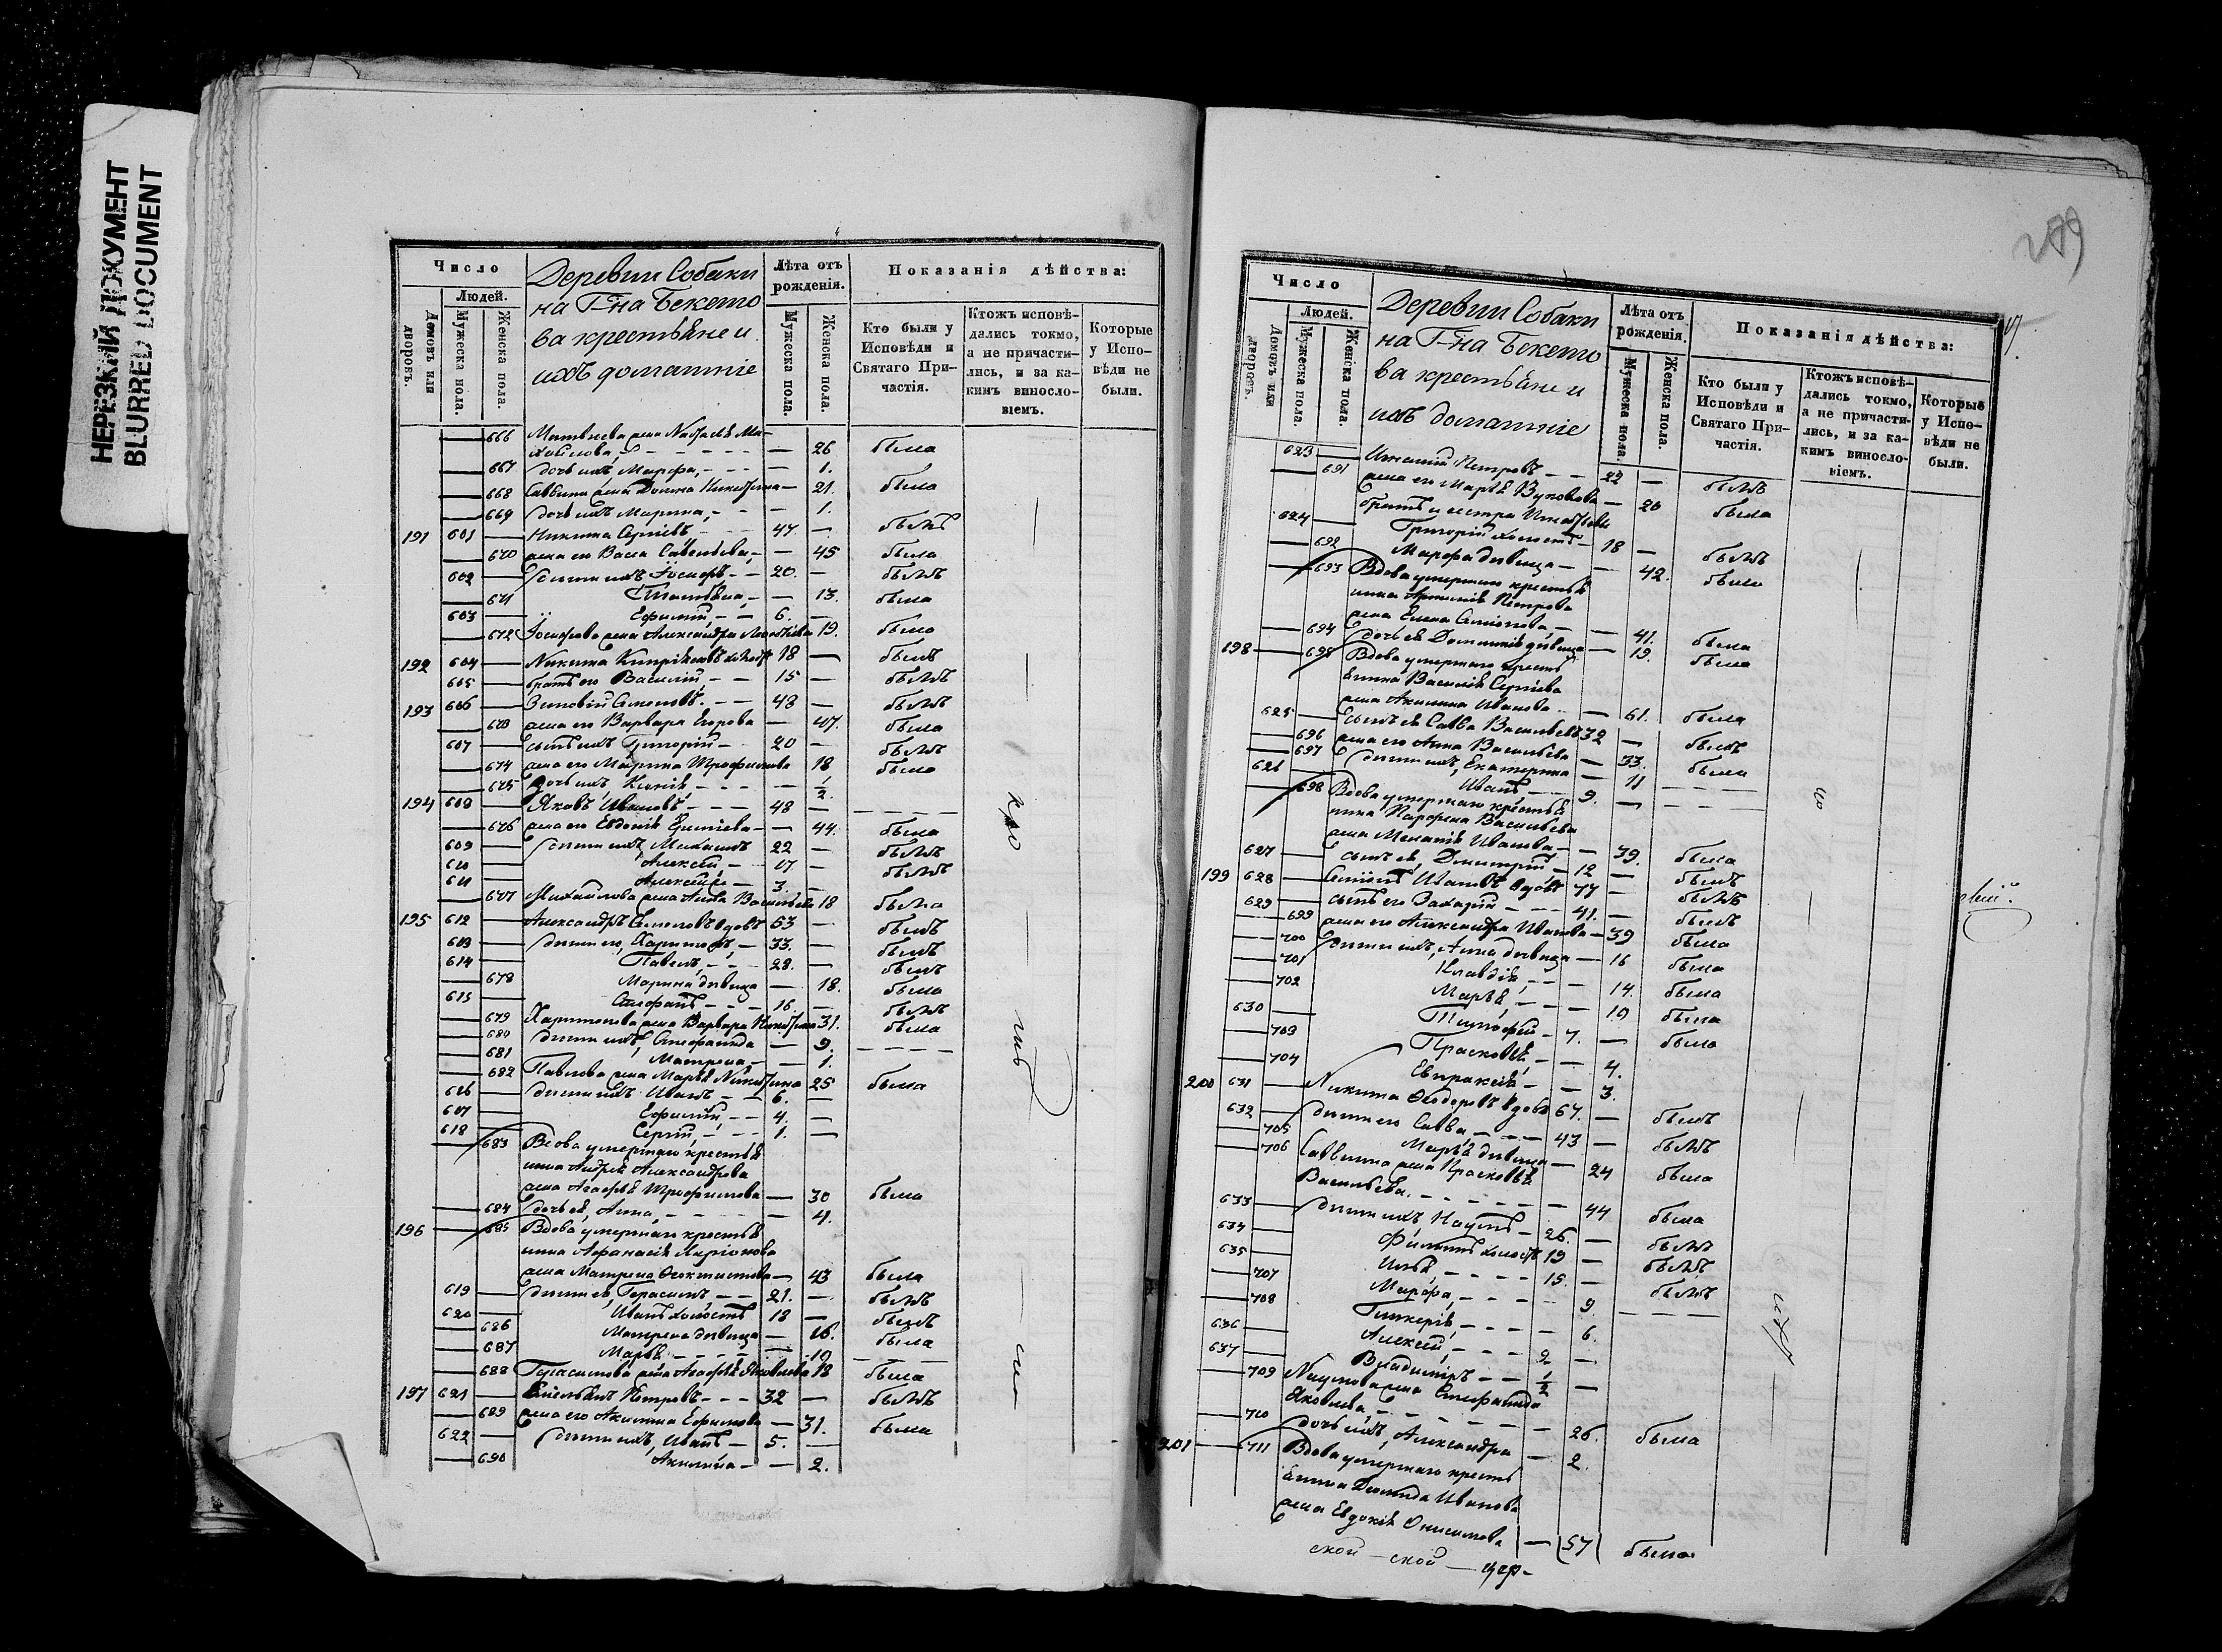 НЕРЕЗКИЙ ДОКУМЕНТ
BLURRED DOCUMENT
Число
Людей.
Домовъ или дворовъ.
Мужеска пола.
Женска пола.
Деревни Собаки
на Г-на Бекето
ва крестьяне и
ихъ домашніе
Лѣта отъ рожденія.
Мужеска пола.
Женска пола.
Показанія дѣйства:
Кто были у Исповѣди и Святаго Причастія.
Ктожъ исповѣдались токмо, а не причастились, и за какимъ винословіемъ.
Которые у Исповѣди не были.
666 Матвѣева жена Наталья Ми-
хайлова, — 26 была
667 дочь ихъ Марфа, — 1.
668 Саввина жена Домна Никитина — 21. была
669 дочь ихъ Марина, — 1.
191 601 Никита Сергіевъ 47 — былъ
670 жена его Васса Савельева, — 45 была
602 дѣти ихъ Іосифъ 20. — былъ
671 Татьяна, — 13. была
603 Ефимій, 6. —
672 Іосифова жена Александра 19. была
192 604 Никита холостъ 18 — былъ
605 братъ его Василій, 15 — былъ
193 606 Зиновій Семеновъ. 48 — былъ
673 жена его Варвара Егорова — 47. была
607 сынъ ихъ Григорій 20 — былъ
674 жена его Марина Трофимова 18 была
675 дочь ихъ, Ксенія — 1/2.
194 608 Яковъ Ивановъ 48 —
676 жена его Евдокія — 44. была
609 дѣти ихъ Михаилъ 22 — былъ
610 Алексѣй 17 — былъ
611 Алексѣй 3. —
677 Михайлова жена Анна Васильева 18 была
195 612 Александръ Семеновъ вдовъ 53 — былъ
613 дѣти его, Харитонъ, 33. — былъ
614 Павелъ, 28. — былъ
678 Марина дѣвица — 18. была
615 Стефанъ 16. — былъ
679 Харитонова жена Варвара Никитина 31. была
680 дѣти ихъ, Стефанида — 9.
681 Матрена, — 1.
682 Павлова жена Марья Никитина 25 была
616 дѣти ихъ Иванъ 6. —
617 Ефимій, 4. —
618 Сергій, 1. —
683 Вдова умершаго крестья
нина Андрея Александрова
жена Агафья Трофимова — 30 была
684 дочь ея, Анна, — 4.
196 685 Вдова умершаго крестья
нина Афанасія Ларіонова
жена Матрена Феоктистова — 43 была
619 дѣти ея, Герасимъ 21. — былъ
620 Иванъ холостъ 18 — былъ
686 Матрена дѣвица — 16. была
687 Марья — 10
688 Герасимова жена Агафья Яковлева 18 была
197 621 Емельянъ Петровъ 32 — былъ
689 жена его Акилина Ефимова — 31. была
622 дѣти ихъ, Иванъ 5. —
690 Акилина — 2.
279
Число
Людей.
Домовъ или дворовъ.
Мужеска пола.
Женска пола.
Деревни Собаки
на Г-на Бекето
ва крестьяне и
ихъ домашніе
Лѣта отъ рожденія.
Мужеска пола.
Женска пола.
Показанія дѣйства:
Кто были у Исповѣди и Святаго Причастія.
Ктожъ исповѣдались токмо, а не причастились, и за какимъ винословіемъ.
Которые у Исповѣди не были.
623 Петровъ 22 — былъ
691 жена его Марья — 20 была
братъ и сестра
624 Григорій холостъ 18 — былъ
692 Марфа дѣвица — 42. была
693 Вдова умершаго крестья
нина Петрова
жена Елена — 41. была
694 дочь ея дѣвица — 19. была
198 695 Вдова умершаго кресть
янина Василія Сергіева
жена Акилина Иванова — 61. была
625 сынъ ея Савва Васильевъ 32 — былъ
696 жена его Анна Васильева — 33. была
697 дѣти ихъ, Екатерина — 11
626 Иванъ 9. —
698 Вдова умершаго крестья
нина Васильева
жена Меланія Иванова — 39. была
627 сынъ ея, Дмитрій, 12 — былъ
199 628 Семенъ Ивановъ вдовъ 77 — былъ
629 сынъ его Захарій 41. — былъ
699 жена его Александра Иванова — 39 была
700 дѣти ихъ, Анна дѣвица — 16 была
701 Клавдія, — 14. была
702 Марья, — 10 была
630 Тимофей 7. — была
703 Прасковья, — 4.
704 Евпраксія — 3.
200 631 Никита Феодоровъ вдовъ 67. — былъ
632 дѣти его Савва, 43 — былъ
705 Марья дѣвица — 24 была
706 Саввина жена Прасковья
Васильева. — 44 была
633 дѣти ихъ, Наумъ 26. — былъ
634 Филиппъ холостъ 19 — былъ
635 Илья, 15. — былъ
707 Марфа, — 9.
708 Гликерія, — 6.
636 Алексѣй, 2 —
637 Владиміръ 1/2 —
709 Наумова жена Стефанида
Яковлева — 26. была
710 дочь ихъ, Александра — 2.
201 711 Вдова умершаго кресть
янина Иванова
жена Евдокія Онисимова — 57 была
ской — ской — цер-